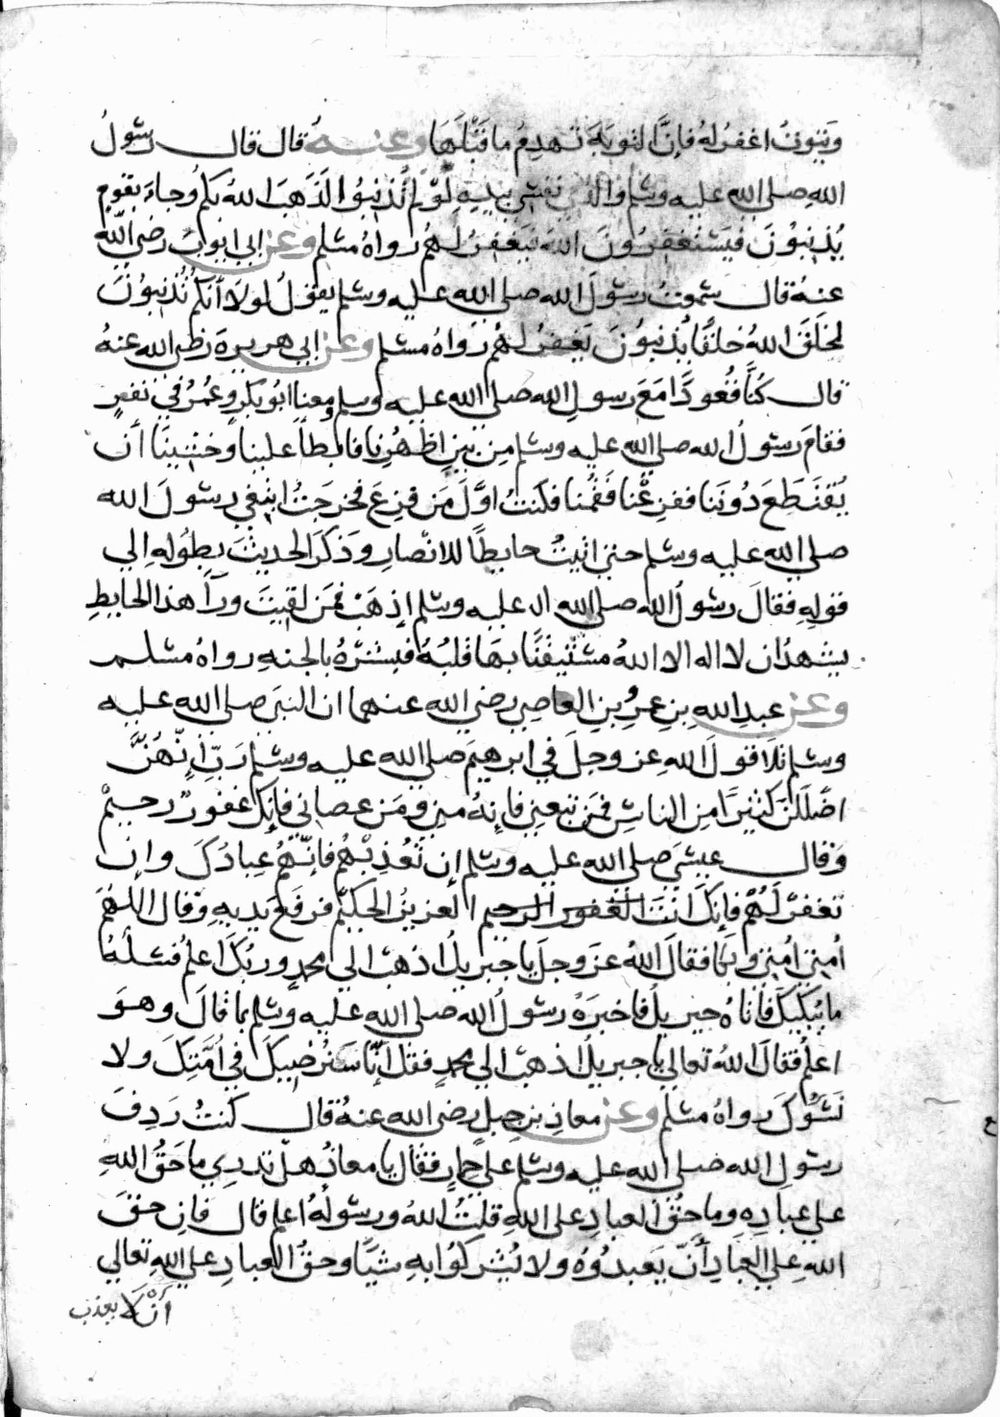 ويتوبُ اغفرُ لهُ فإنَّ التوبةَ تهدِمُ ما قَبْلَهَا وعنـــه قال قال رسولُ
الله صلى الله عليه وسلم والذي نفسي بيدِهِ لَوْ لم تُذنِبُوا لَذَهَبَ اللهُ بكُم وجاءَ بقومٍ
يُذنِبُونَ فيَسْتَغفِرُونَ اللهَ فيَغفِرُ لهُم رواهُ مسلم وعن ابي ايوبَ رضي الله
عنهُ قال سمعتُ رسُولَ الله صلى الله عليه وسلم يقولُ لولا أنكُم تُذنبُونَ
لخَلَقَ اللهُ خلقًا يُذنبُونَ يَغفِرُ لهُم رَواهُ مسلم وعن ابي هريرةَ رضي الله عنهُ
قال كُنَّا قُعُودًا مَعَ رسولِ الله صلى الله عليه وسلم ومعنا ابُو بكرٍ وعُمرُ في نفرٍ
فقامَ رسُولُ الله صلى الله عليه وسلم مِن بينِ اظهُرِنا فابطأ علينا وخشِينَا أن
يُقتَطعَ دُونَنا ففزِعْنا فقُمنا فكنتُ اوَّلَ مَن فزِعَ فخرجتُ ابتغي رسُولَ الله
صلى الله عليه وسلم حتى اتيتُ حايطًا للانصارِ وذكَرَ الحديثَ بطُولِه الي
قولِهِ فقالَ رسُولُ الله صلى الله عليه وسلم اِذهَبْ فمَن لقِيتَ ورآ هذا الحايطِ
يشهدُ ان لا اله الا اللهُ مُسْتَيقِنًا بهَا قلبُهُ فبشِّرْهُ بالجنهِ رواهُ مسلم
وعن عبدِ اللهِ بنِ عمرِو بنِ العاصِي رضي الله عنهما ان النبيَ صلى الله عليه
وسلم تلا قولَ اللهِ عز وجلَ في ابرهيمَ صلى الله عليه وسلم رَبِّ اِنَّهُنَّ
اضْلَلْنَ كثيرًا مِنَ الناسِ فمَن تبعِني فإنهُ مني ومَن عصاني فإنكَ غفورٌ رحيمٌ
وقال عيسَى صلى الله عليه وسلم إن تُعذِّبْهُم فإنَّهُم عِبادُكَ وإن
تغفرْ لهُم فإنكَ انتَ الغفور الرحيم العزيزُ الحكيمُ فرفعَ يديهِ وقال اللهُمَّ
اُمتي اُمتي وبكا فقالَ اللهُ عزَ وجلَ يا جبريلُ اذهبْ الي محمدٍ وربُكَ اعلمُ فسَلْهُ
ما يُبْكيكَ فاتاهُ جبريلُ فاخبرَهُ رسُولُ الله صلى الله عليه وسلم بما قالَ وهوَ
اعلمُ فقالَ اللهُ تعالي يا جبريلُ اذهبْ الي محمدٍ فقل اِنَّا سَنُرْضيكَ في اُمتِكَ ولا
نَسُوُكَ رواهُ مسلم وعن معاذِ بنِ جبلٍ رضي الله عنهُ قال كنتُ رَدِفَ
رسُولِ الله صلى الله عليه وسلم علي حِمارٍ فقال يا معاذُ هل تدري ما حَقُّ اللهِ
علي عبادِهِ وما حقُّ العبادِ على اللهِ قلتُ اللهُ ورسُولُهُ اعلم قال فان حقَّ
اللهِ علي العِبادِ أنْ يَعبدُوهُ ولا يُشركُوا بهِ شيًا وحقُّ العبادِ علي اللهِ تعالي
أنْ لَا يعذب